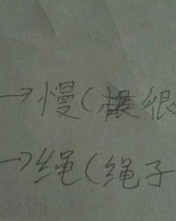 →慢(很
→绳(绳子